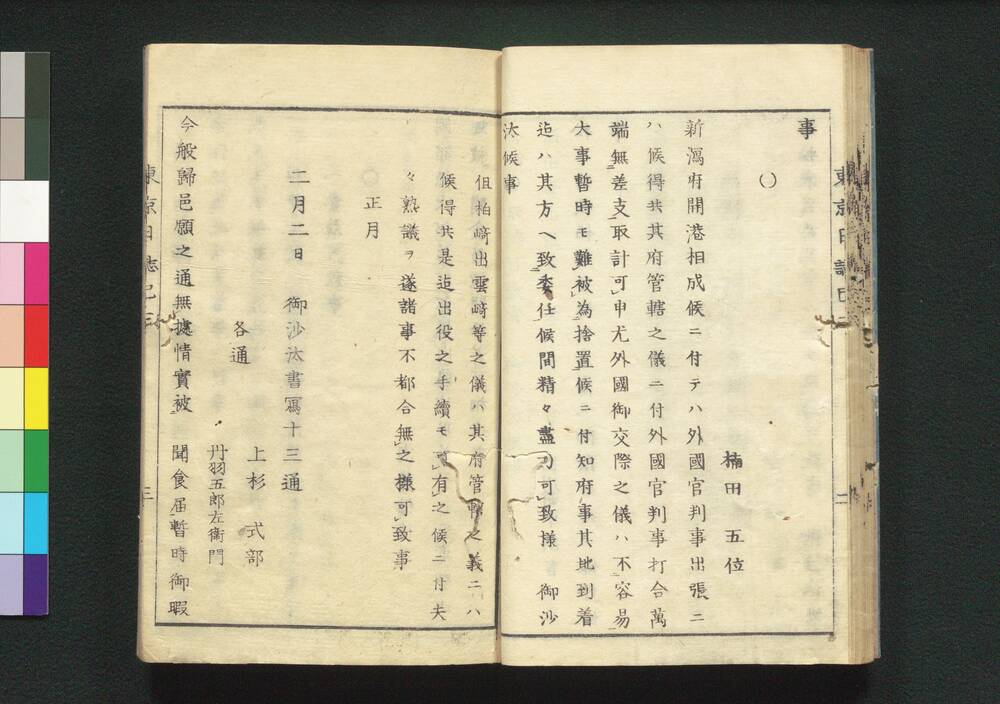 事
〇
楠田五位
新潟府開港相成候ニ付テハ外國官判事出張ニ
ハ候得共其府管轄之儀ニ付外國官判事打合萬
端無差支取計可申尤外國御交際之儀ハ不容易
大事暫時モ難被為捨置候ニ付知府事其地到着
迄ハ其方ヘ致委任候間精々盡力可致様 御沙
汰候事
但柏崎出雲崎等之儀ハ其府管轄之義ニハ
候得共是迄出役之手續モ可有之候ニ付夫
々熟議ヲ遂諸事不都合無之様可致事
〇正月
二月二日 御沙汰書寫十三通
各通
上杉式部
丹羽五郎左衛門
今般歸邑願之通無據情實被 聞食届暫時御暇
東京日誌巳三
三
二